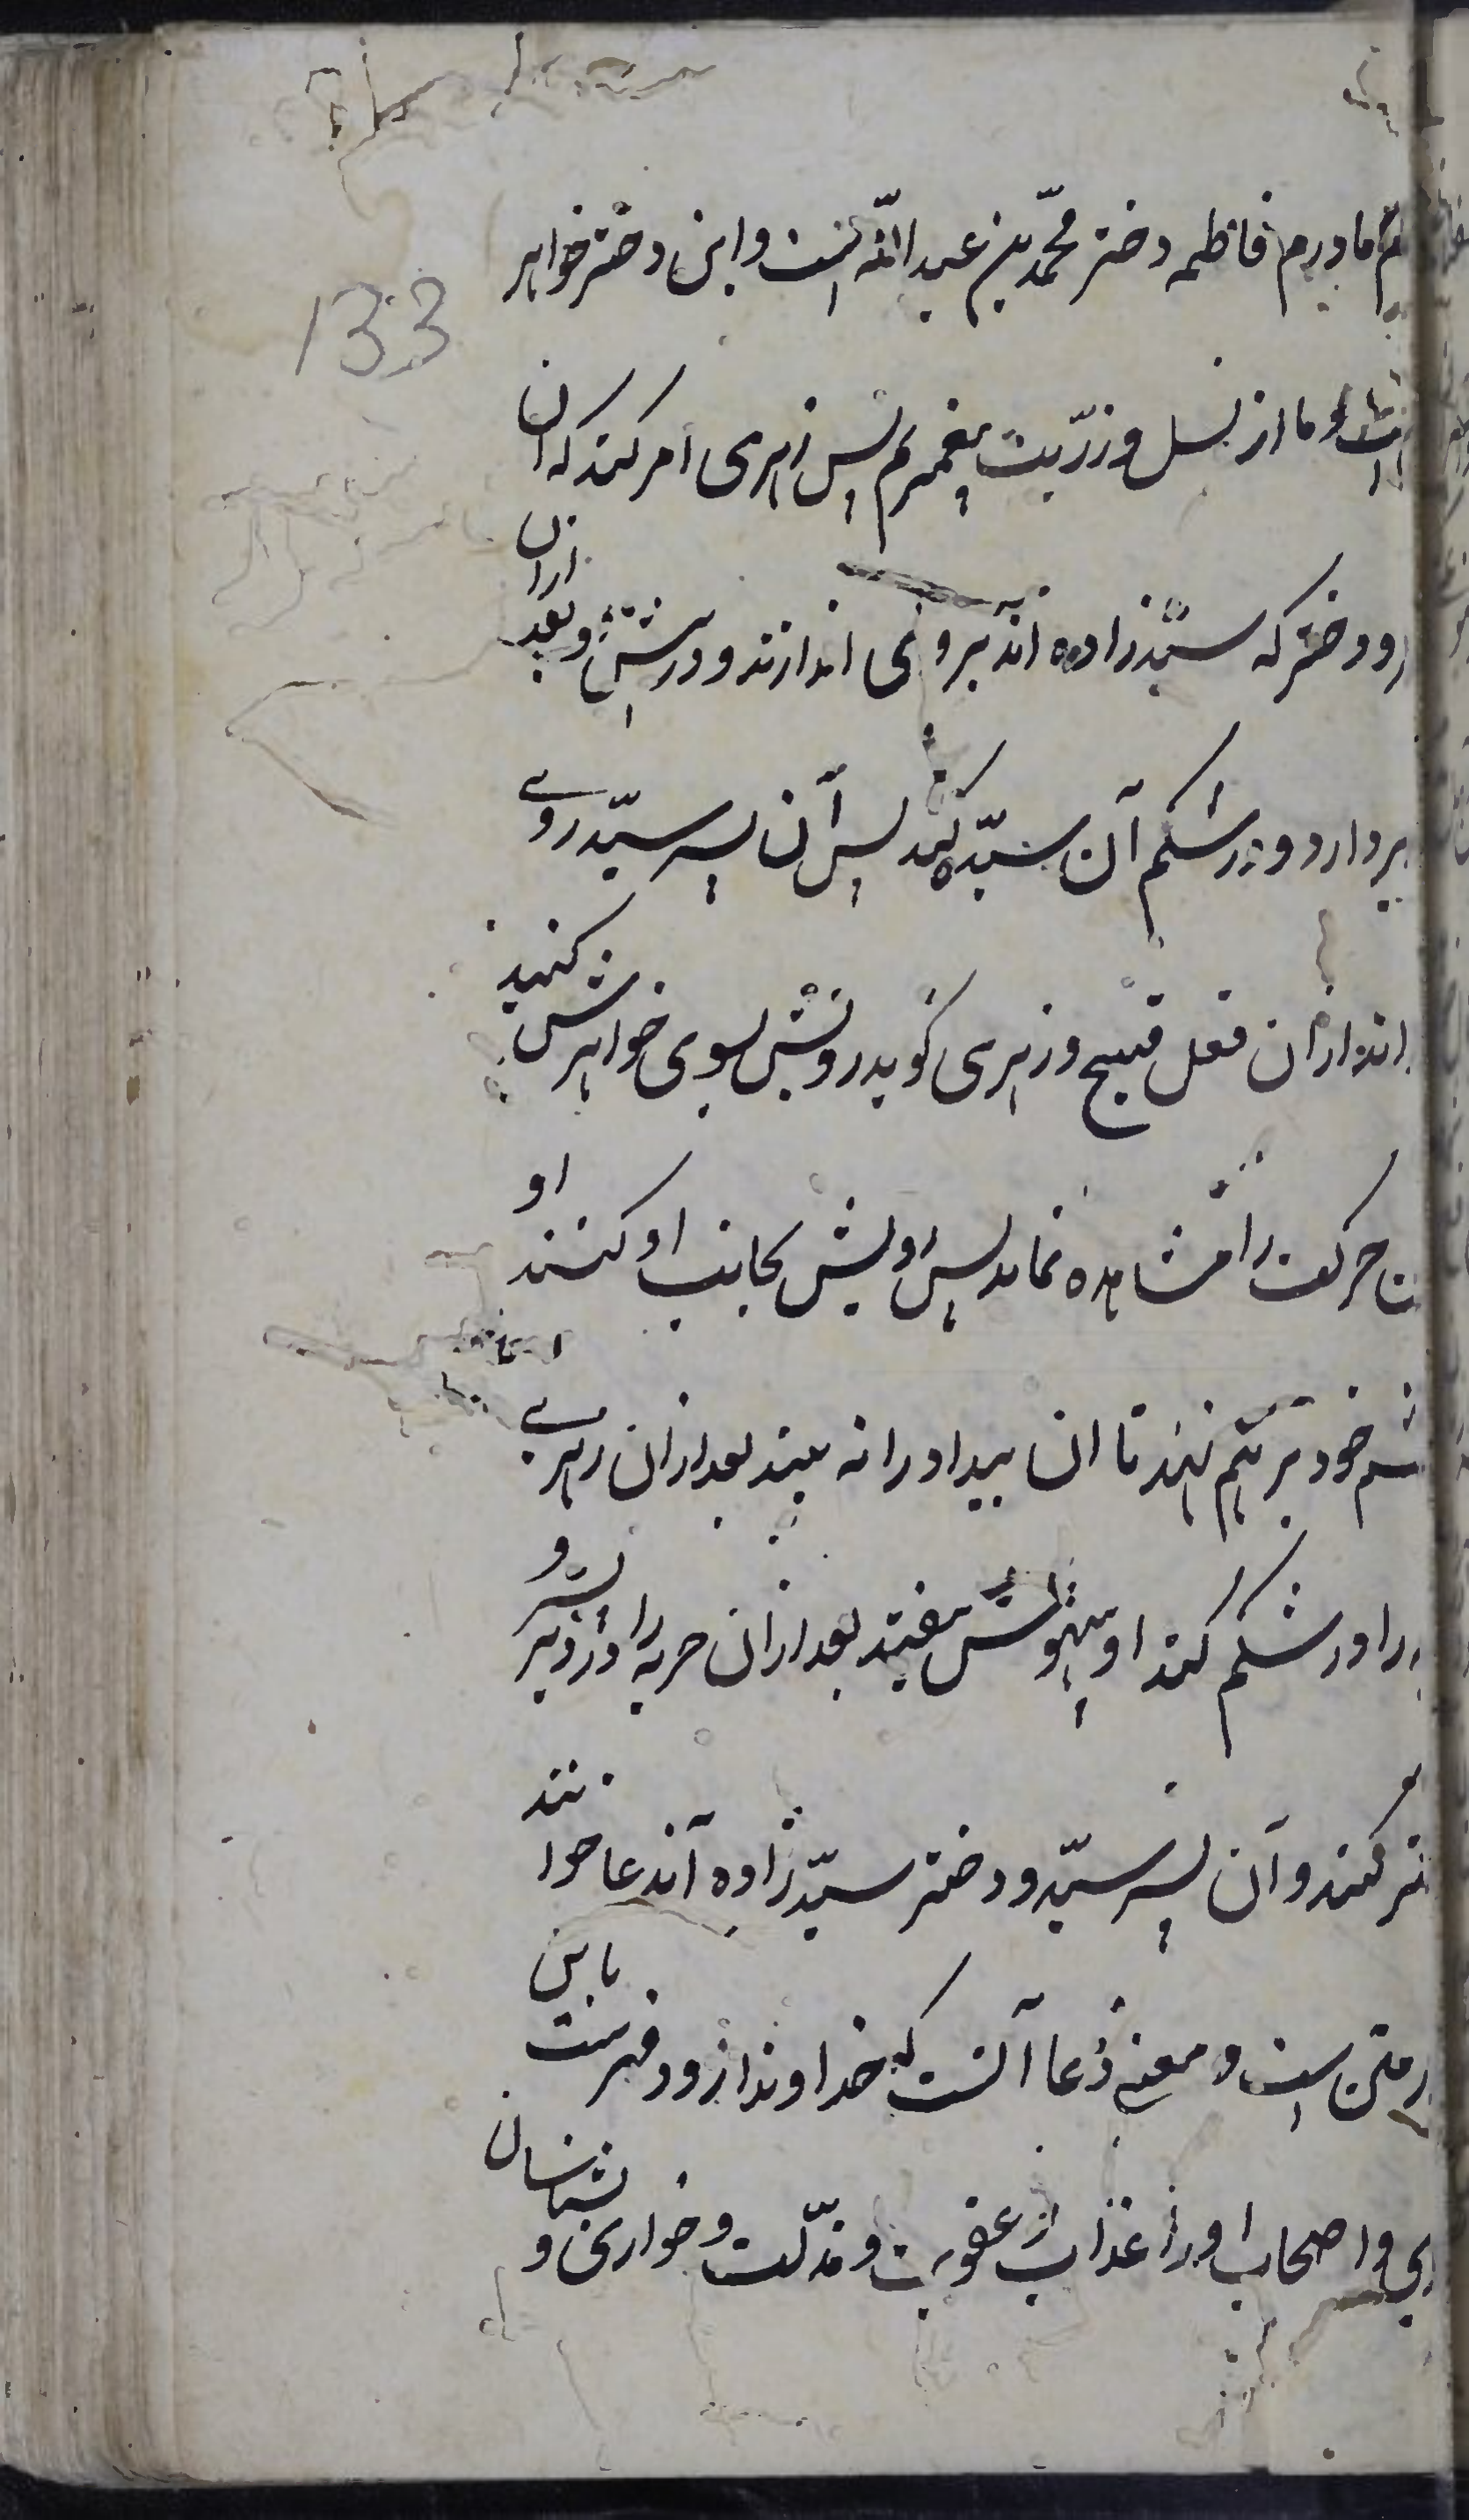 مادرم فاطمه دختر محمّد بن عبد الله است و این دختر خواهر
است و ما از نسل و زرّیت پیغمبریم پس زهری امر کند که آن
رو دختر که سیّدزاده اند برو می اندازند و درشتش و بعد ازان
بردارد و در شکم آن سیّد کند پس آن پسر سیّد روی
اندازان فعل قبیح و زهری گوید رویش بسوی خواهرش کنید
حرکت را مشاهده نماید پس رویش بجانب او کنند او
چشم خود بر هم نهد تا ان بیداد را نه بیند بعد ازان زهری
را در شکم کند او بیهوش بیفتد بعد ازان حربه را
کنند و آن پسر سیّد و دختر سیّدزاده آندعا خوانند
متن است و معنی دُعا آنست که خداوندا زود فرست باین
و اصحاب او را عذاب عقوبت و مذلّت و خواری و نشان
133